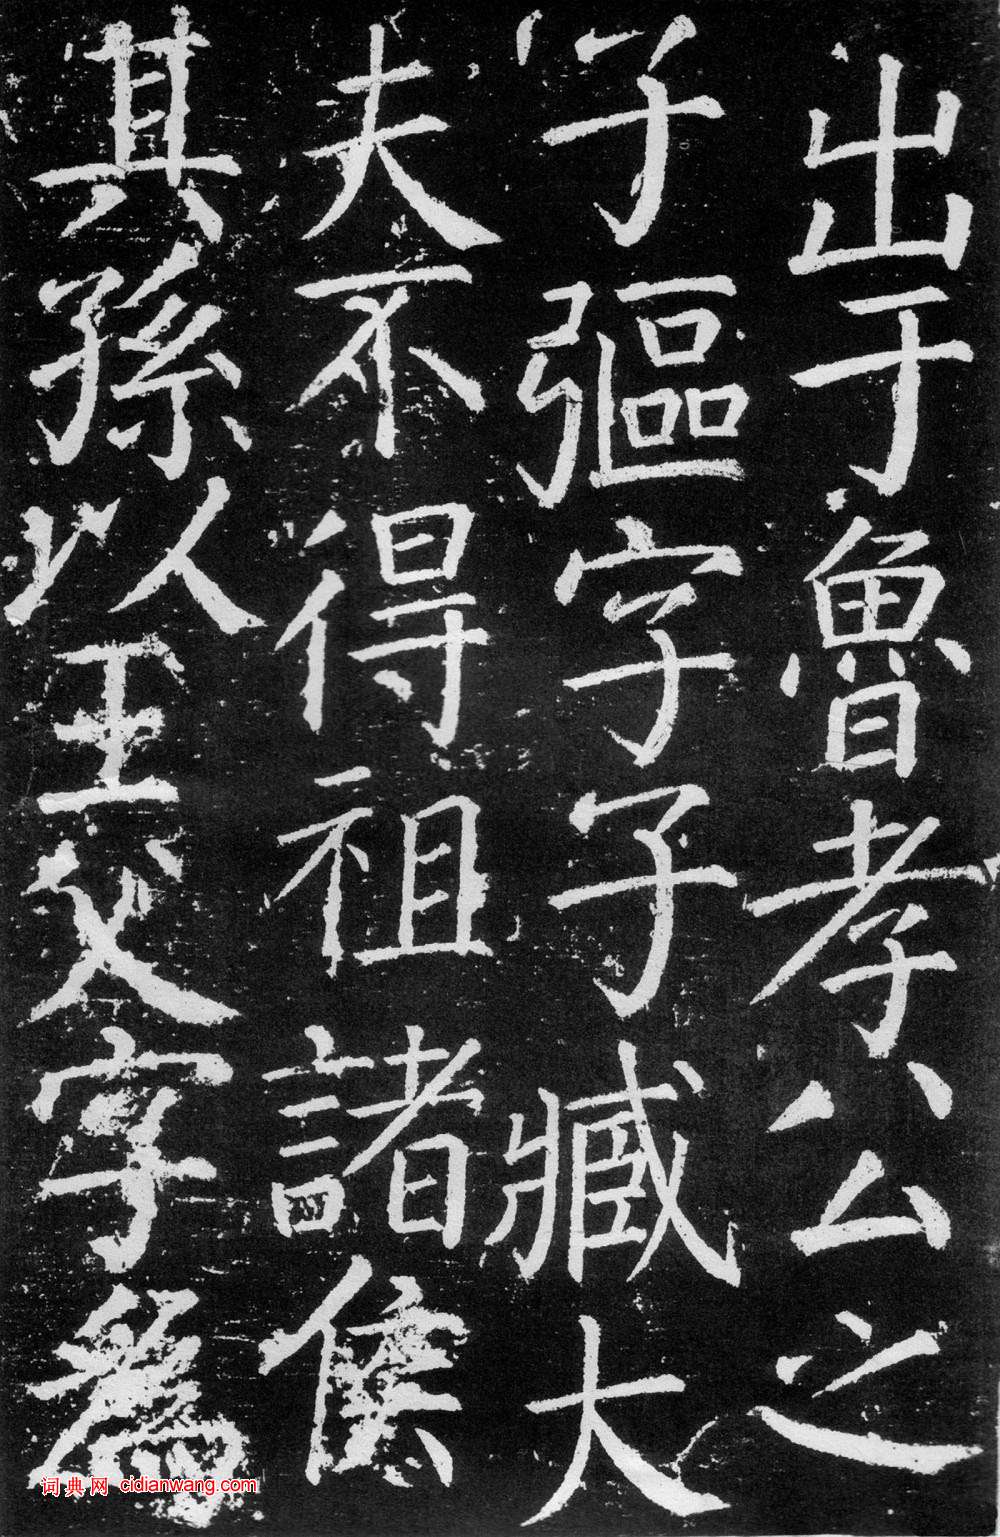 出于魯孝公之
子彄字子臧大
夫不得祖諸侯
其孫以王父字爲
词典网 cidianwang.com